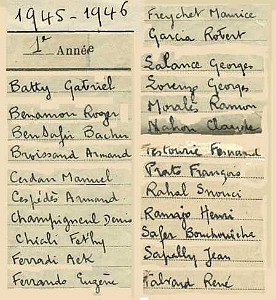 1945-1946
1e Année
Batty Gabriel
Benamon Roger
Ben Safi Bachir
Broissand Armand
Cerdan Manuel
Cespédès Armand
Champigneul Denis
Chiali Fethy
Ferradi Aek
Ferrando Eugène
Freychet Maurice
Garcia Robert
Lalance Georges
Lorenzo Georges
Morali Ramon
Nahon Claude
Pestourie Fernand
Prats François
Rahal Snouci
Ramajo Henri
Safer
Sapelly Jean
Valrand René